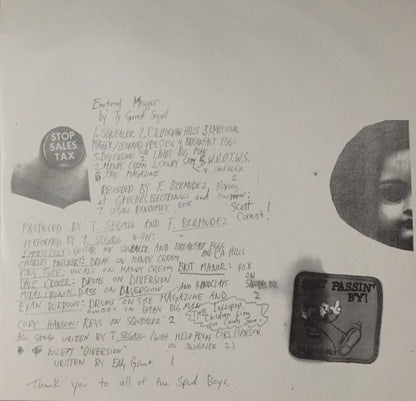 Emotional Mugger
by Ty Garrett Segall
STOP
SALES
TAX
1. SQUEALER 2. CALIFORNIAN HILLS 3. EMOTIONAL
MUGGER/LEOPARD PRIESTESS 4. BREAKFAST EGGS
5. DIVERSION BABY BIG MAN
MANDY CREAM CANDY SAM W.U.O.T.W.S.
SQUEALER
THE MAGAZINE 2
RECORDED BY F. BERMUDEZ,
at GAUCHOS ELECTRONICS and
T. SEGALL RANDOMLY. 2015
Scott
Cornish!
PRODUCED BY T. SEGALL AND F. BERMUDEZ
PERFORMED BY T. SEGALL WITH:
EMMETT KELLY: GUITAR ON SQUEALER AND BREAKFAST EGGS
AND CA HILLS
CHARLES MOOTHART: DRUMS ON MANDY CREAM
KING TUFF: VOCALS ON MANDY CREAM BRIT MANOR: VOX
ON SQUEALER
DALE CROVER: DRUMS ON DIVERSION
MIKAL CRONIN: BASS ON DIVERSION AND HANDCLAPS
2
EVAN BURROWS: DRUMS ON THE MAGAZINE AND
ON BABY BIG MAN
THE Lollipop
children sing
on Candy Sam
CORY HANSON: KEYS ON SQUEALER 2
ALL SONGS WRITTEN BY T. SEGALL (WITH HELP FROM CORY HANSON
ON SQUEALER 2)
EXCEPT "DIVERSION"
WRITTEN BY Eddy Grant.
Thank you to all of the Spud Boys.
PASSIN'
BY!